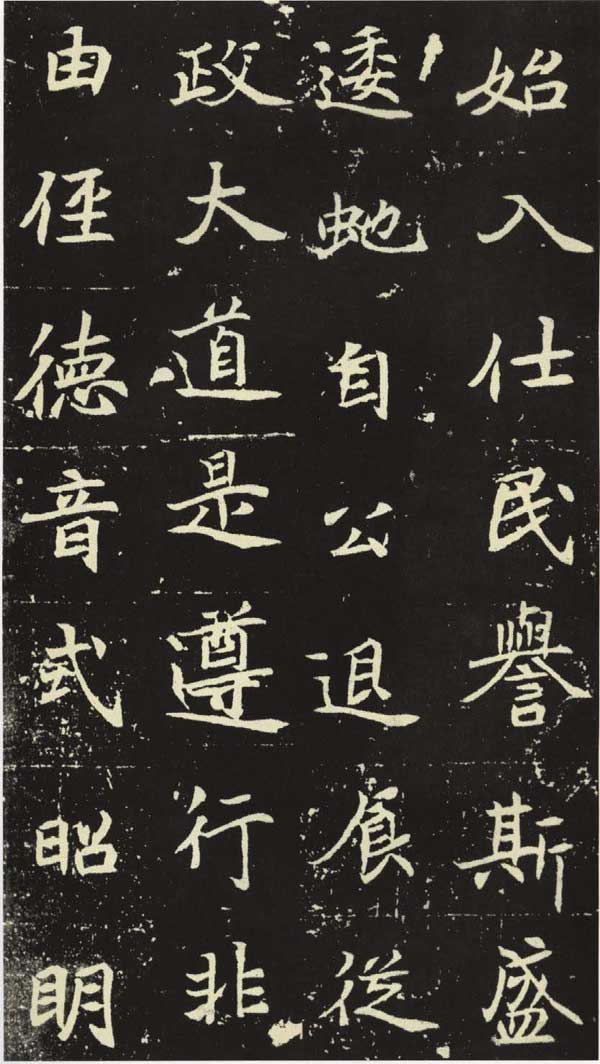 始入仕民譽斯盛
逶虵自公退食從
政大道是遵行非
由俓徳音式昭眀